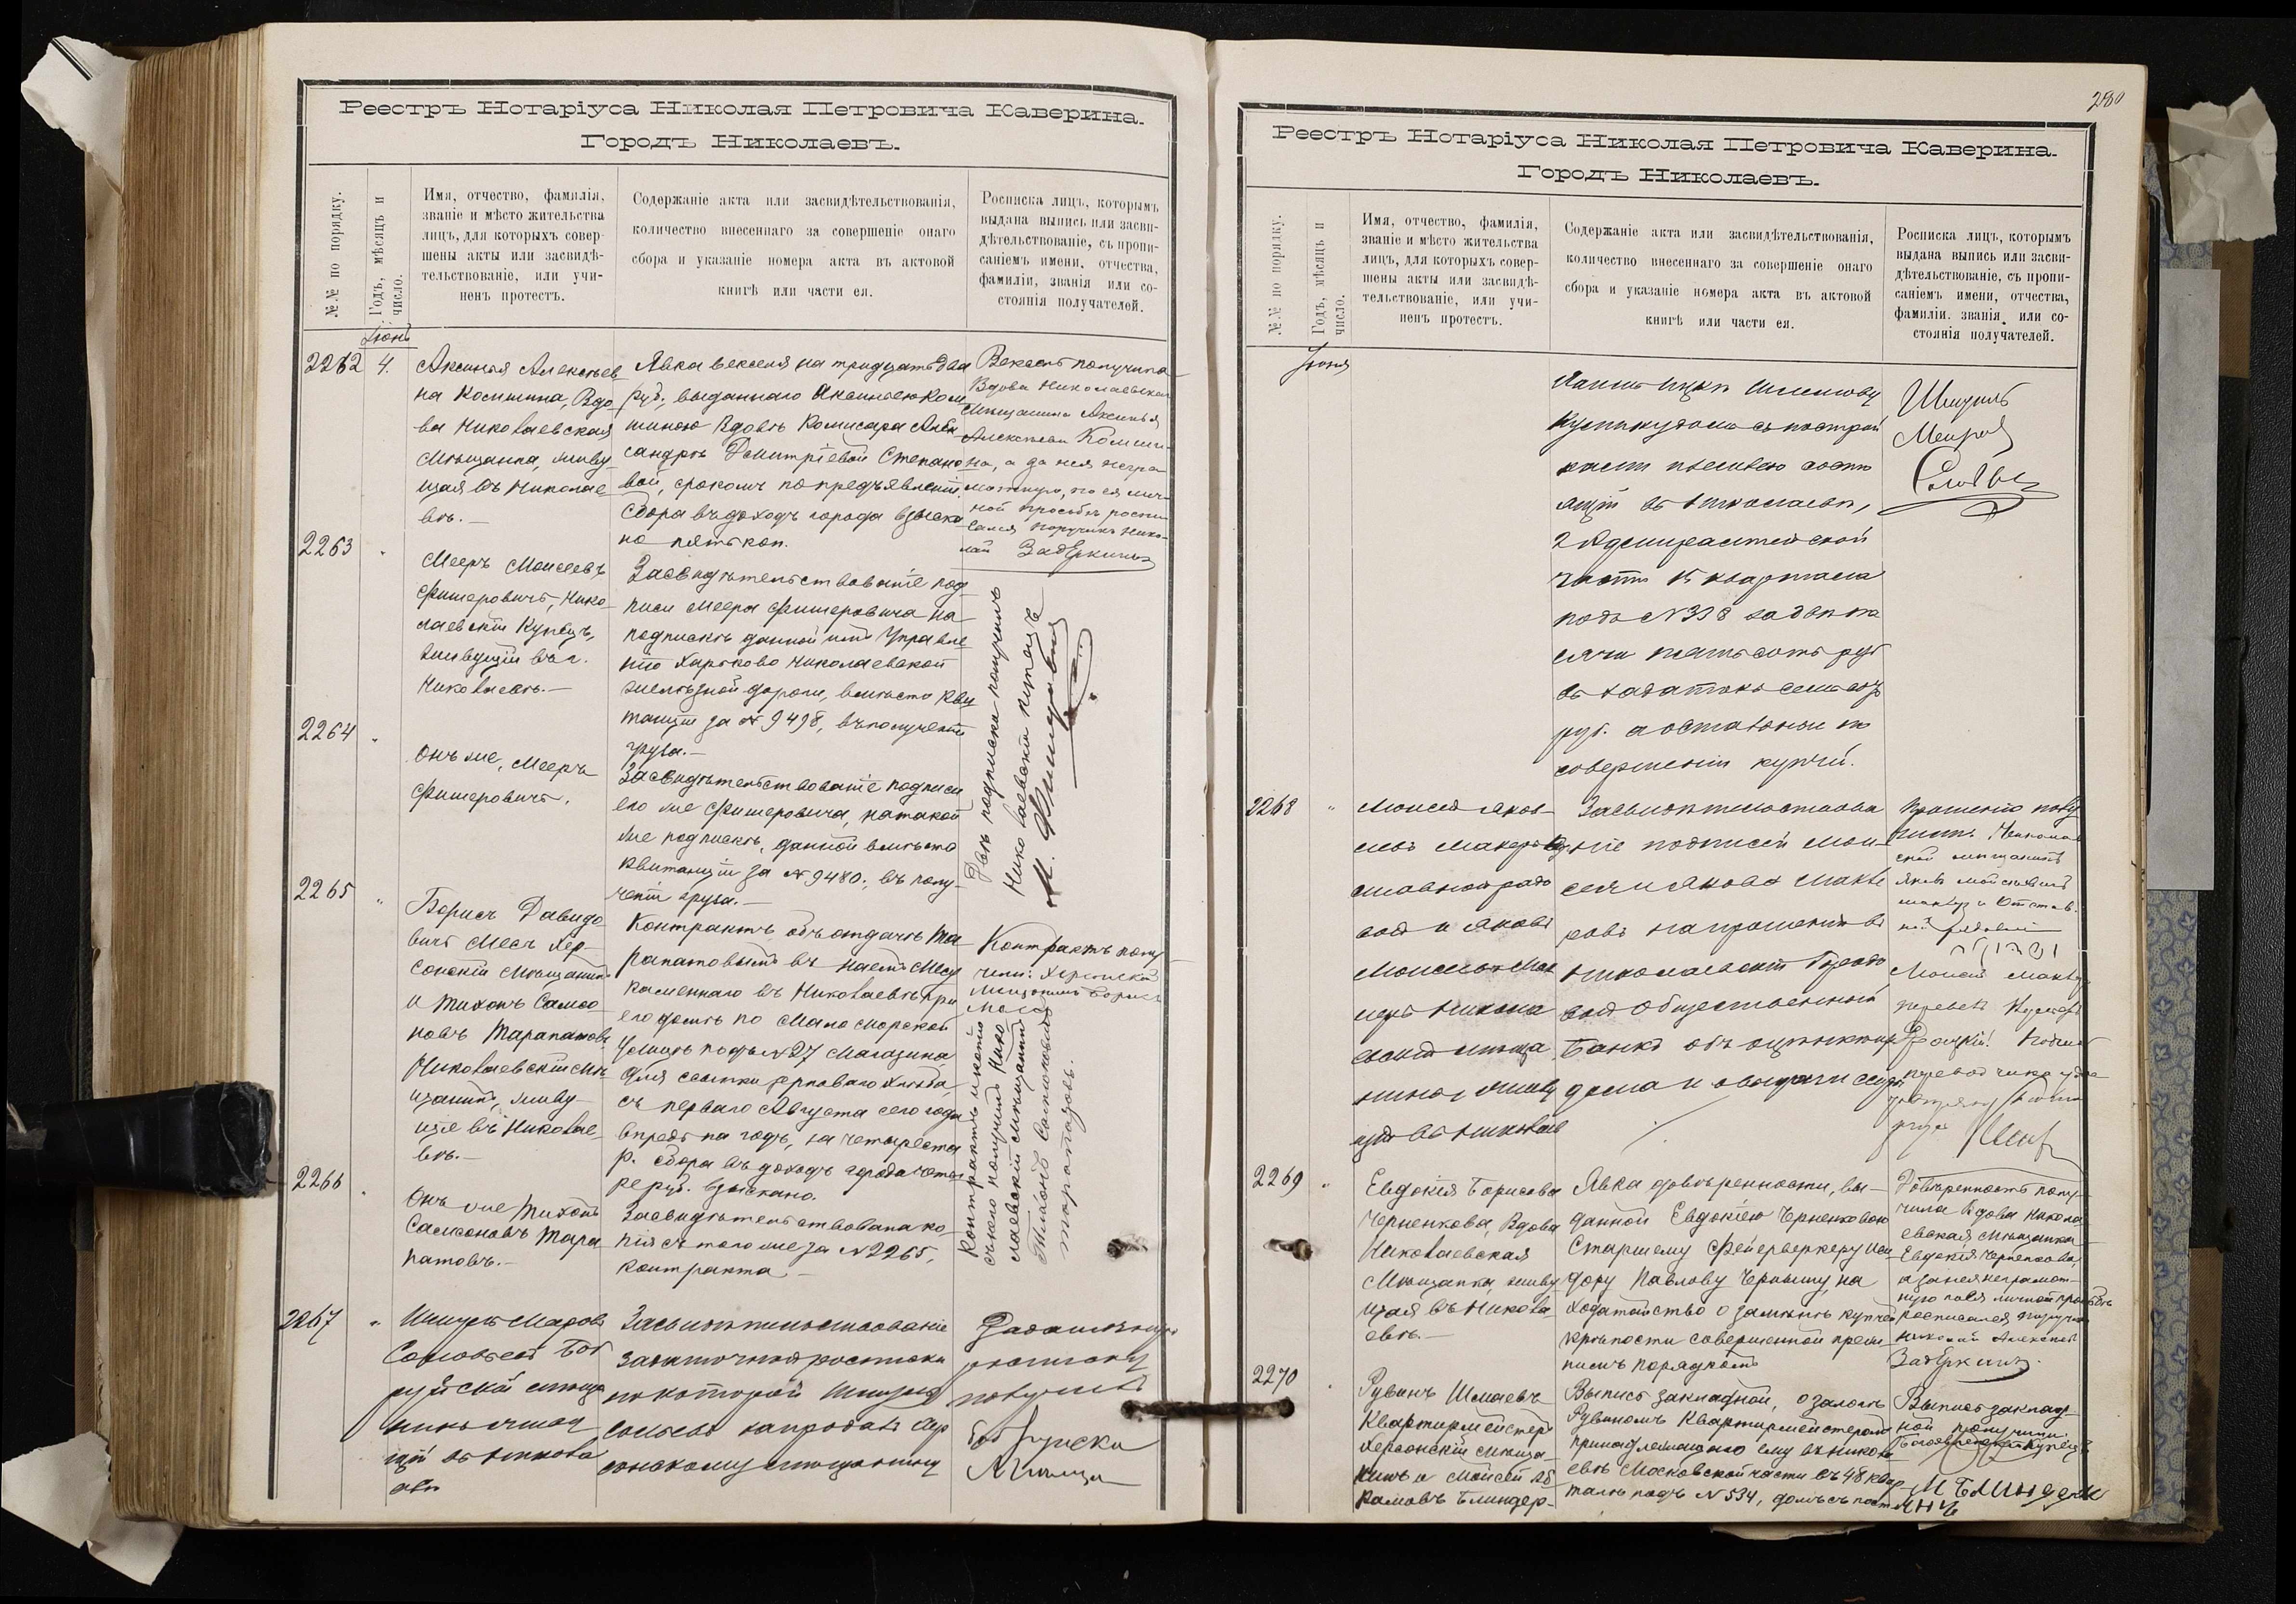 Реестръ Нотаріуса Николая Петровича Каверина.
Городъ Николаевъ.
№№ по порядку.
Годъ, мѣсяцъ и
число.
Имя, отчество, фамилія,
званіе и мѣсто жительства
лицъ, для которыхъ совер-
шены акты или засвидѣ-
тельствованіе, или учи-
ненъ протестъ.
Содержаніе акта или засвидѣтельствованія,
количество внесеннаго за совершеніе онаго
сбора и указаніе номера акта въ актовой
книгѣ или части ея.
Росписка лицъ, которымъ
выдана выпись или засви-
дѣтельствованіе, съ пропи-
саніемъ имени, отчества,
фамиліи, званія или со-
стоянія получателей.
2262
4.
Аксинья Алексѣев
на Комшина, Вдо
ва Николаевская
Мѣщанка, живу
щая въ Николае
вѣ.—
Явка векселя на тридцать два
руб., выданнаго Аксиньею Ком
шиною Вдовѣ Комисара Алек
сандрѣ Дмитріевой Степано
вой, срокомъ по предъявленіи.
Сбора въ доходъ города взыска
но пять коп.
Вексель получила
Вдова Николаевская
Мѣщанка Аксинья
Алексѣева Комши
на, а за нея негра
мотную, по ея лич
ной просьбѣ роспи
сался поручикъ Нико-
лай
2263
"
Мееръ Моисеевъ
Фишеровичъ, Нико
лаевскій Купецъ,
живущій въ г.
Николаевѣ.—
Засвидѣтельствованіе под
писи Меера Фишеровича на
подпискѣ данной имъ Управле
нію Харьково Николаевской
желѣзной дороги, вмѣсто кви
танціи за № 9498, въ полученіи
груза.—
2264
"
Онъ же, Мееръ
Фишеровичъ.
Засвидѣтельствованіе подписи
его же Фишеровича, на такой
же подпискѣ, данной вмѣсто
квитанціи за № 9480, въ полу-
ченіи груза.—
Двѣ подписки получилъ
Николаевскій купецъ
М. Фишеровичъ
2265
"
Борисъ Давидо
вичъ Месъ Хер-
сонскій Мѣщанинъ
и Тихонъ Самсо
новъ Тарапатовъ
Николаевскій Мѣ
щанинъ, живу-
щіе въ Николае
вѣ.—
Контрактъ объ отдачѣ Та
рапатовымъ въ наемъ Месу
каменнаго въ Николаевѣ при
его домѣ по Мало Морской
улицѣ подъ № 27 Магазина,
для ссыпки зерноваго хлѣба,
съ перваго Августа сего года
впредь на годъ, за четыреста
р. Сбора въ доходъ города четы
ре руб. взыскано.
Контрактъ полу-
чилъ: Херсонскій
Мѣщанинъ Борисъ
Месъ
2266
"
Онъ же Тихонъ
Самсоновъ Тара
патовъ.—
Засвидѣтельствована ко-
пія съ того же за № 2265,
контракта.—
Контрактъ и копію
съ него получилъ Нико
лаевскій мѣщанинъ
Тихонъ Самсоновъ
Тарапатовъ.
2267
"
Соловьевъ Боб
руйскій мѣща
нинъ живу
щій въ Никола
евѣ
Засвидѣтельствованіе
задаточной росписки
по которой Шмуль
Соловьевъ запродалъ
мѣщанину
Задаточную
росписку
получилъ
Бобруйски
Мѣща

280
Реестръ Нотаріуса Николая Петровича Каверина.
Городъ Николаевъ.
№№ по порядку.
Годъ, мѣсяцъ и
число.
Имя, отчество, фамилія,
званіе и мѣсто жительства
лицъ, для которыхъ совер-
шены акты или засвидѣ-
тельствованіе, или учи-
ненъ протестъ.
Содержаніе акта или засвидѣтельствованія,
количество внесеннаго за совершеніе онаго
сбора и указаніе номера акта въ актовой
книгѣ или части ея.
Росписка лицъ, которымъ
выдана выпись или засви-
дѣтельствованіе, съ пропи-
саніемъ имени, отчества,
фамиліи, званія или со-
стоянія получателей.
Іюня
въ Николаевѣ,
2 Адмиралтейской
части 15 квартала
подъ № 398 за двѣ ты
сячи пятьсотъ руб
въ задатокъ семьсотъ
руб. а остальные по
совершеніи купчей.
Шмуль
2268
"
Моисей Яков-
левъ Макеръ
отставной рядо
вой и Яковъ
Моисеевъ Мак
еръ Никола
евскій мѣща
нинъ, живу
щіе въ Николае
Засвидѣтельствова
ніе подписей Мои-
сея и Якова Маке
ровъ на прошеніи въ
Николаевскій Городс
кой Общественный
Банкъ объ оцѣнкѣ
дома и о выдачи ссуды
Прошеніе полу
чилъ Николаев
скій мѣщанинъ
Моисей
2269
"
Евдокія Борисова
Черненкова, Вдова
Николаевская
Мѣщанка, живу
щая въ Никола
евѣ.—
Явка довѣренности, вы-
данной Евдокіею Черненковою
Старшему Фейерверкеру Иси
дору Павлову Черныму, на
ходатайство о замѣнѣ купчей
крѣпости совершенной преж
нимъ порядкомъ
Довѣренность полу-
чила Вдова Никола
евская Мѣщанка
Евдокія Черненкова,
а за нея неграмот-
ную по ея личной просьбѣ
росписался поручикъ
Николай Алексѣевъ
2270
"
Рувинъ Шмаевъ
Квартирмейстеръ
Херсонскій мѣща-
нинъ и Моисей Аб
рамовъ Блиндер-
Выпись закладной, о залогѣ
Рувиномъ Квартирмейстеромъ
принадлежащаго ему въ Никола
евѣ Московской части въ 48 квар
талѣ подъ № 534, домъ съ пост
Выпись заклад-
ной получилъ
Купецъ
М Блиндерм